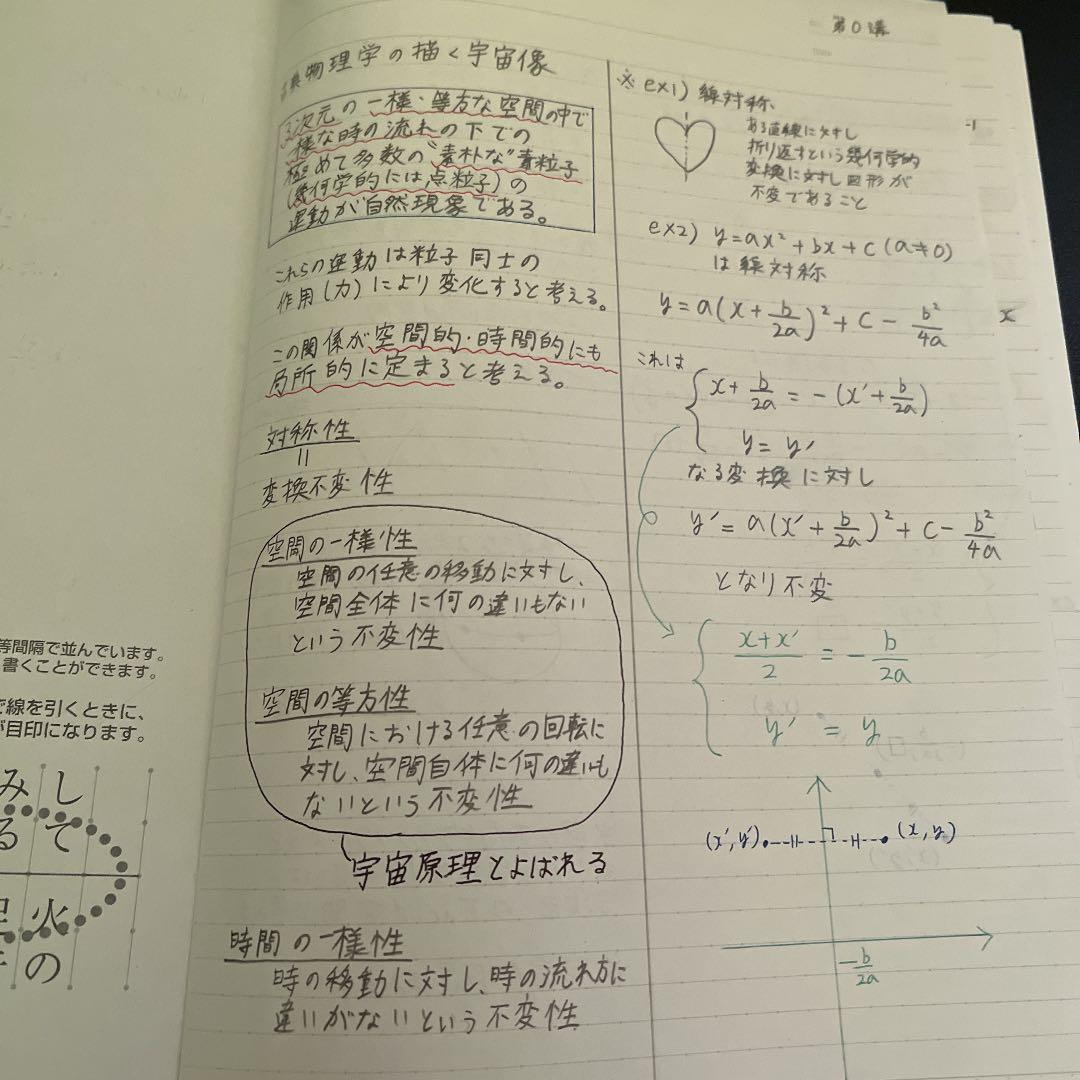 第0講
物理学の描く宇宙像
3次元の一様・等方な空間の中で
様な時の流れの下での
極めて多数の"素朴な"素粒子
(幾何学的には点粒子)の
運動が自然現象である。
これらの運動は粒子同士の
作用(力)により変化すると考える。
この関係が空間的・時間的にも
局所的に定まると考える。
対称性
=
変換不変性
空間の一様性
空間の任意の移動に対し、
空間全体に何の違いもない
という不変性
空間の等方性
空間における任意の回転に
対し、空間自体に何の違いも
ないという不変性
宇宙原理とよばれる
時間の一様性
時の移動に対し、時の流れ方に
違いがないという不変性
※ex1) 線対称
ある直線に対し
折り返すという幾何学的
変換に対し図形が
不変であること
ex2) y=ax²+bx+c (a≠0)
は線対称
y=a(x+b/2a)²+c-b²/4a
これは
x+b/2a=-(x'+b/2a)
y=y'
なる変換に対し
y'=a(x'+b/2a)²+c-b²/4a
となり不変
(x+x')/2=-b/2a
y'=y
(x',y') (x,y)
-b/2a
-1
x
等間隔で並んでいます。
書くことができます。
で線を引くときに、
が目印になります。
みし
るて
火
の